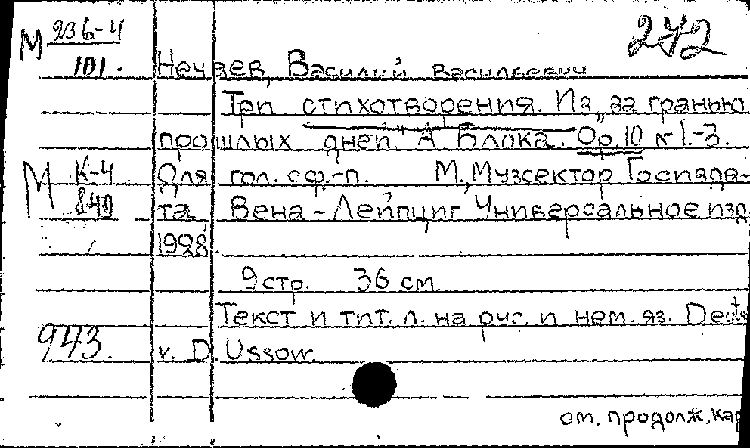 М 236-4 272
101. Нечаев, Василий Васильевич
Три стихотворения. Из „за гранью
прошлых дней" А. Блока. Op. 10 № 1-3.
М К-4 Для гол. с ф-п. М., Музсектор Госизда-
840 та Вена - Лейпциг Универсальное изд
1928
9 стр. 36 см
Текст и тит. л. на рус. и нем. яз. Deuts
943. v. D. Ussow.
см. продолж. кар